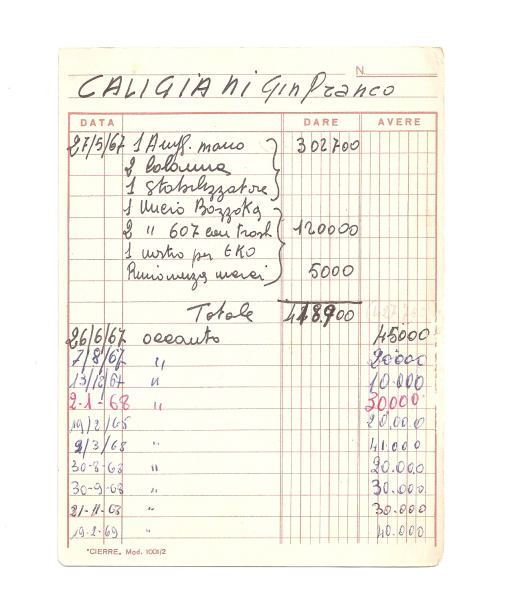 N.
CALIGIANI GinFranco
DATA DARE AVERE
27/5/67 1 Amp. mano 302700
2 Colonna
1 Stabilizzatore
1 Bozzoka
2 " 607 con trasf. 120000
1 nostro per EKO
5000
Totale
26/6/67 acconto 45000
7/8/67 " 20000
13/12/67 " 10.000
2-1-68 " 30000
19/2/68 20.000
2/3/68 " 41.000
30-8-68 " 20.000
30-9-68 " 30.000
21-11-68 " 30.000
19-2-69 " 40.000
"CIERRE" Mod. 1001/2